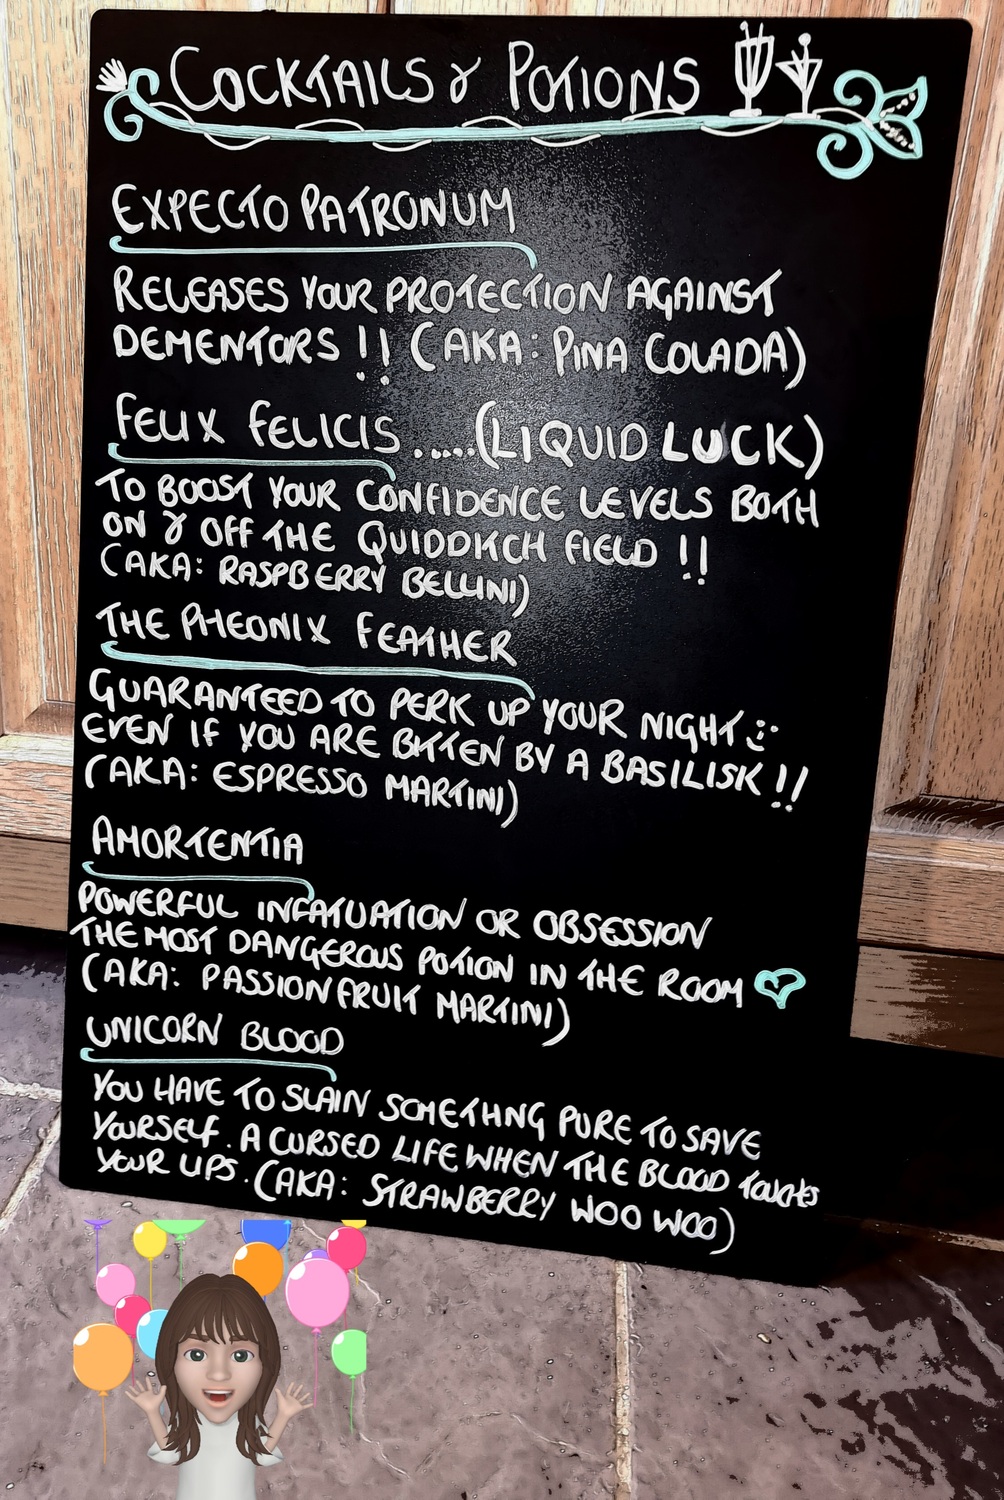 COCKTAILS & POTIONS
EXPECTO PATRONUM
RELEASES YOUR PROTECTION AGAINST
DEMENTORS !! (AKA: PINA COLADA)
FELIX FELICIS.....(LIQUID LUCK)
TO BOOST YOUR CONFIDENCE LEVELS BOTH
ON & OFF THE QUIDDITCH FIELD !!
(AKA: RASPBERRY BELLINI)
THE PHEONIX FEATHER
GUARANTEED TO PERK UP YOUR NIGHT
EVEN IF YOU ARE BITTEN BY A BASILISK !!
(AKA: ESPRESSO MARTINI)
AMORTENTIA
POWERFUL INFATUATION OR OBSESSION
THE MOST DANGEROUS POTION IN THE ROOM
(AKA: PASSIONFRUIT MARTINI)
UNICORN BLOOD
YOU HAVE TO SLAIN SOMETHNG PURE TO SAVE
YOURSELF. A CURSED LIFE WHEN THE BLOOD TOUCHES
YOUR LIPS. (AKA: STRAWBERRY WOO WOO)